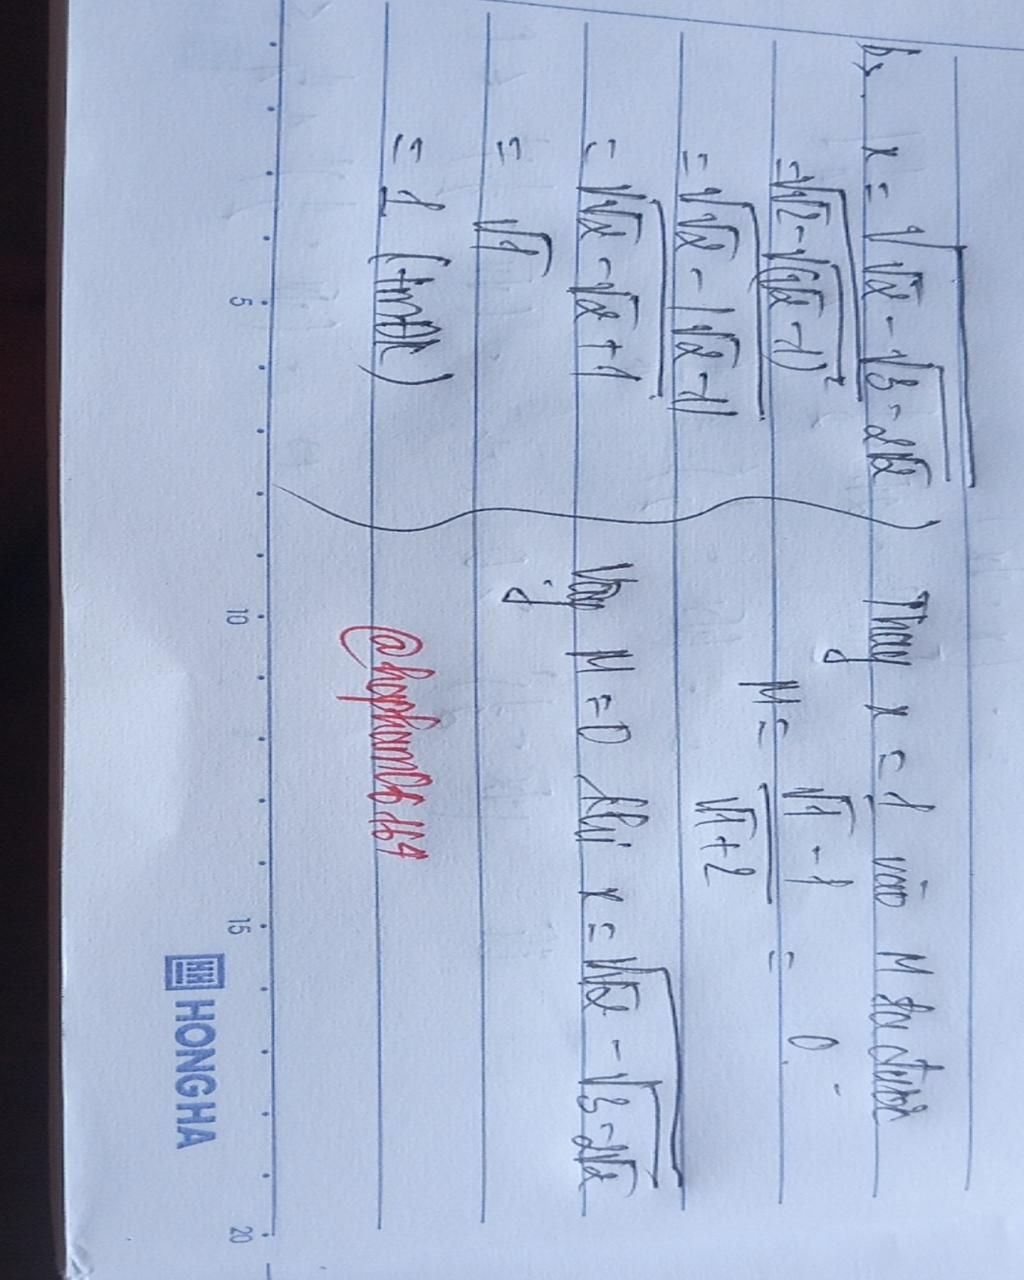 b, x = √(√2 - √(3 - 2√2))
= √(√2 - √((√2 - 1)²))
= √(√2 - |√2 - 1|)
= √(√2 - √2 + 1)
= √1
= 1 (tmđk)
Thay x = 1 vào M ta được
M = (√1 - 1)/(√1 + 2) = 0.
Vậy M = 0 khi x = √(√2 - √(3 - 2√2))
5 10 15 20
HONG HA